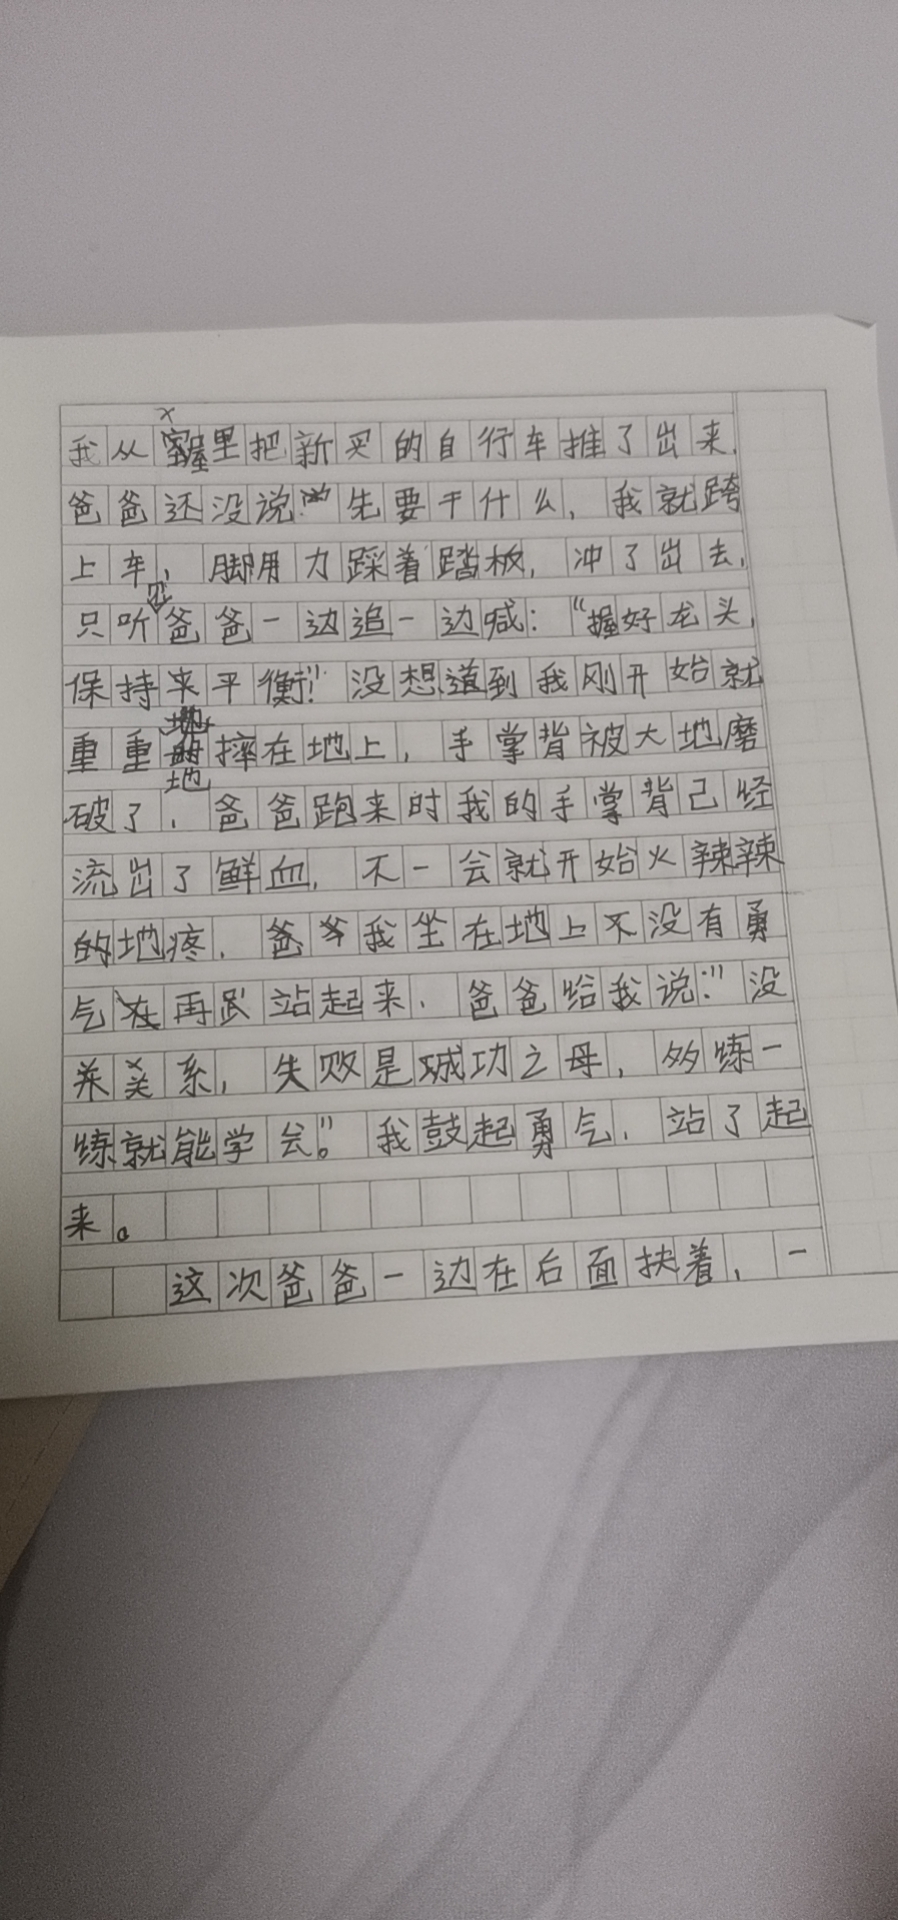 我从屋里把新买的自行车推了出来.
爸爸还没说先要干什么,我就跨
上车,脚用力踩着踏板,冲了出去,
只听见爸爸一边追一边喊:“握好龙头,
保持平衡!”没想道到我刚开始就
重重地摔在地上,手掌背被大地磨
破了,爸爸跑来时我的手掌背已经
流出了鲜血,不一会就开始火辣辣
的地疼.爸爷我坐在地上不没有勇
气再站起来.爸爸给我说:”没
关系,失败是成功之母,多练一
练就能学会”。我鼓起勇气,站了起
来。
这次爸爸一边在后面扶着,一